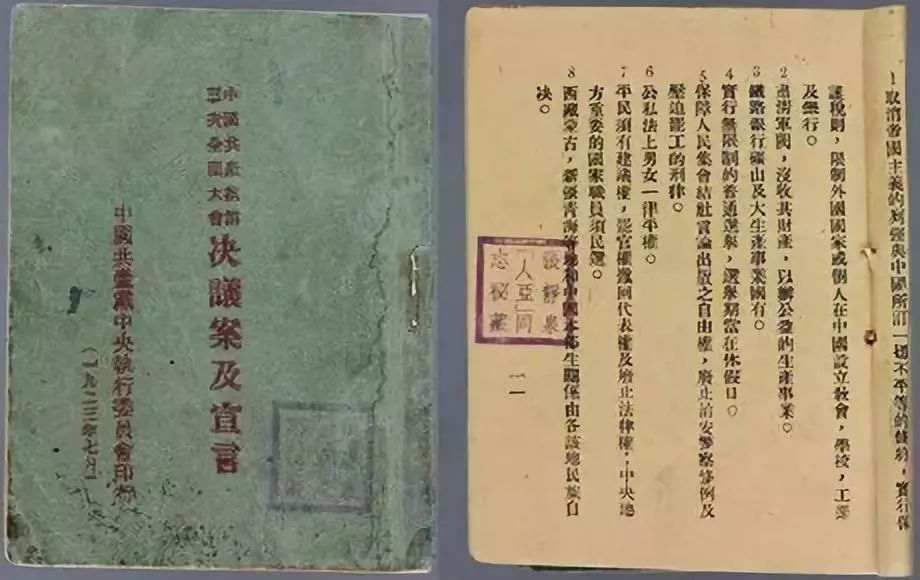 中國共產黨第
三次全國大會
決議案及宣言
中國共產黨中央執行委員會印行
(一九二三年七月)
1 取消帝國主義的列強與中國所訂一切不平等的條約，實行保
護稅則，限制外國國家或個人在中國設立教會，學校，工業
及銀行。
2 肅清軍閥，沒收其財產，以辦公益的生產事業。
3 鐵路銀行礦山及大生產事業國有。
4 實行無限制的普通選舉，選舉期當在休假日。
5 保障人民集會結社言論出版之自由權，廢止治安警察條例及
壓迫罷工的刑律。
6 公私法上男女一律平權。
7 平民須有建議權，罷官權撤回代表權及廢止法律權；中央地
方重要的國家職員須民選。
8 西藏蒙古，新疆青海各地和中國本部生關係由各該地民族自
決。
一一
張靜泉
「人亞」同
志秘藏